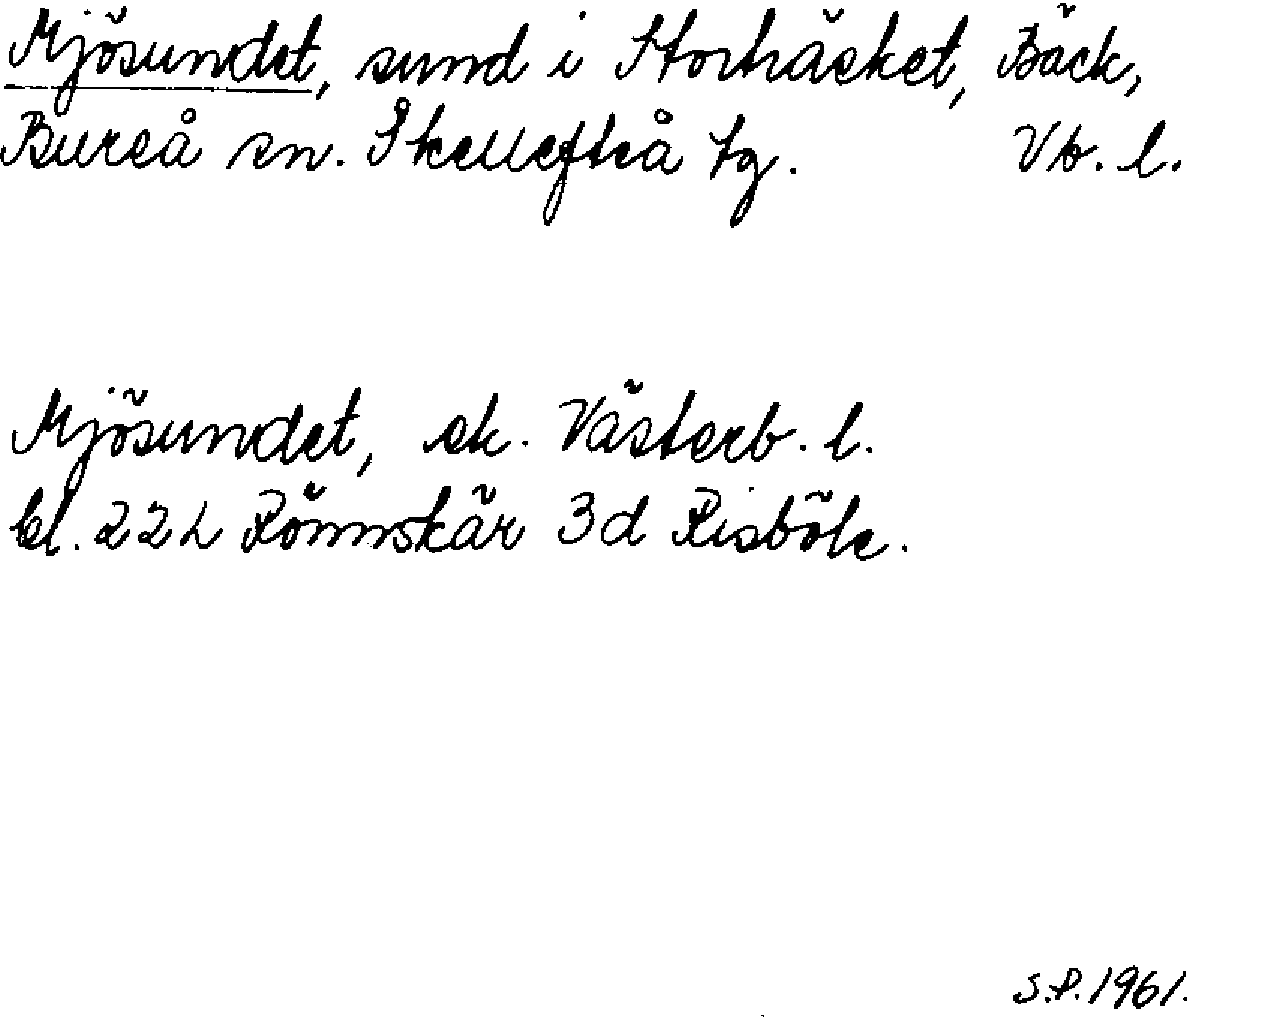 Mjösundet, sund i Storträsket, Bäck,
Bureå sn. Skellefteå tg. Vb. l.
Mjösundet, ek. Västerb. l.
bl. 22 L Rönnskär 3d Risböle.
S.P. 1961.